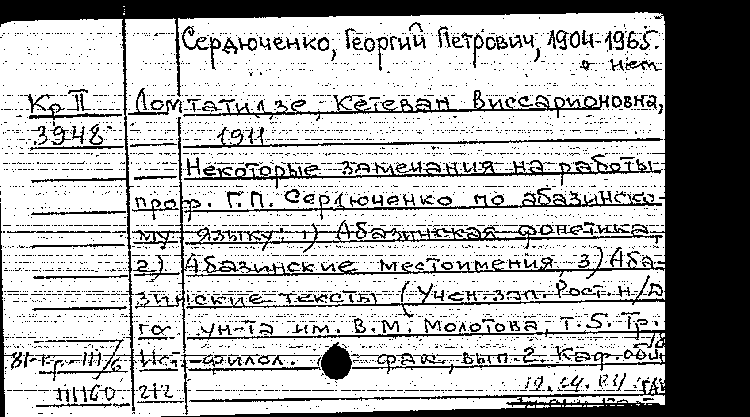 Сердюченко, Георгий Петрович, 1904-1965.
о нем
Кр II Ломтатидзе, Кетеван Виссарионовна,
3948 1911
Некоторые замечания на работы
проф. Г.П. Сердюченко по абазинско-
му языку: 1) Абазинская фонетика,
2) Абазинские местоимения, 3) Аба-
зинские тексты (Учен. зап. Рост. н/Д
го ун-та им. В.М. Молотова, т. 5. Тр.
81-кр-III/6 Ист-филол. фак., вып. 2. Каф. общ.
111160 212